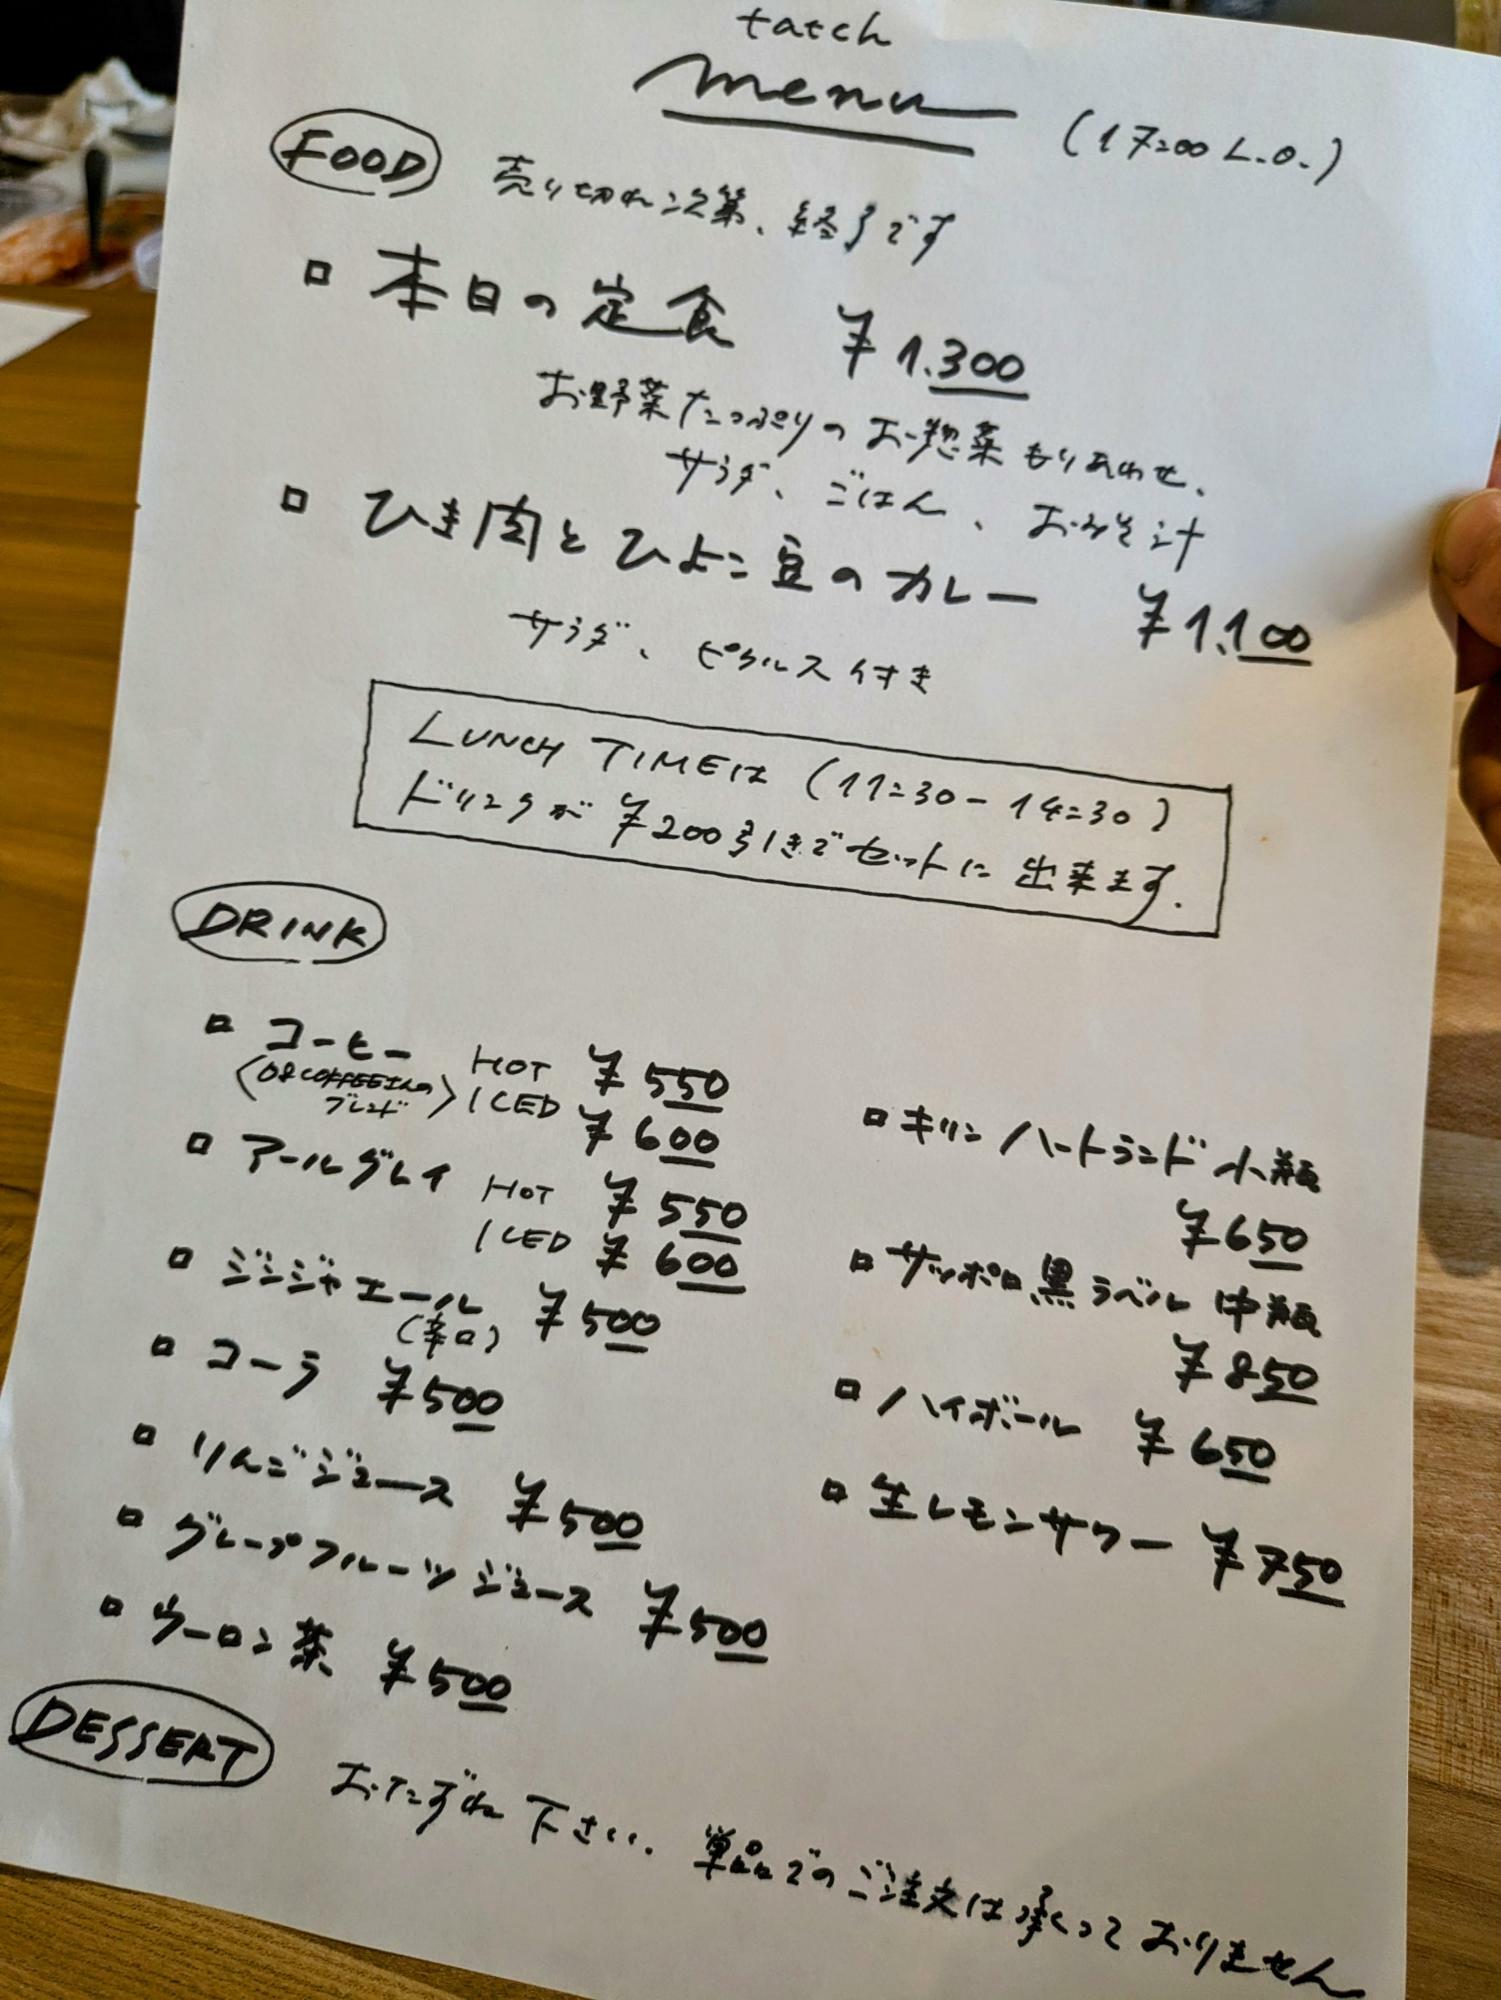 tatch
menu
(17:00 L.O.)
FOOD 売り切れ次第、終了です
本日の定食 ¥1.300
お野菜たっぷりのお惣菜もりあわせ、
サラダ、ごはん、おみそ汁
ひき肉とひよこ豆のカレー ¥1.100
サラダ、ピクルス付き
LUNCH TIMEは (11:30 - 14:30)
ドリンクが ¥200引きでセットに出来ます.
DRINK
コーヒー HOT ¥550
ICED ¥600
ブレンド
アールグレイ HOT ¥550
ICED ¥600
ジンジャエール ¥500
(辛口)
コーラ ¥500
りんごジュース ¥500
グレープフルーツジュース ¥500
ウーロン茶 ¥500
キリン ハートランド 小瓶
¥650
サッポロ黒ラベル 中瓶
¥850
ハイボール ¥650
生レモンサワー ¥750
DESSERT
おたずね下さい. 単品でのご注文は承っておりません